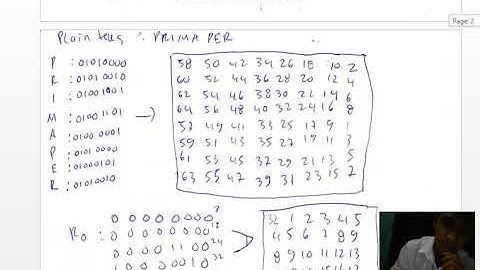 Page: 2
Plain teks : PRIMA PER
P : 01010000
R : 01010010
I : 01001001
M : 01001101
A : 01000001
P : 01010000
E : 01000101
R : 01010010
58 50 42 34 26 18 10 2
60 52 44 36 28 20 12 4
62 54 46 38 30 22 14 6
64 56 48 40 32 24 16 8
57 49 41 33 25 17 9 1
59 51 43 35 27 19 11 3
61 53 45 37 29 21 13 5
63 55 47 39 31 23 15 7
R0 :
0 0 0 0 0 0 0 0 8
0 0 0 0 0 0 0 0
0 0 0 0 1 1 0 0 24
0 0 0 0 1 0 32
32 1 2 3 4 5
4 5 6 7 8 9
8 9 10 11 12 13